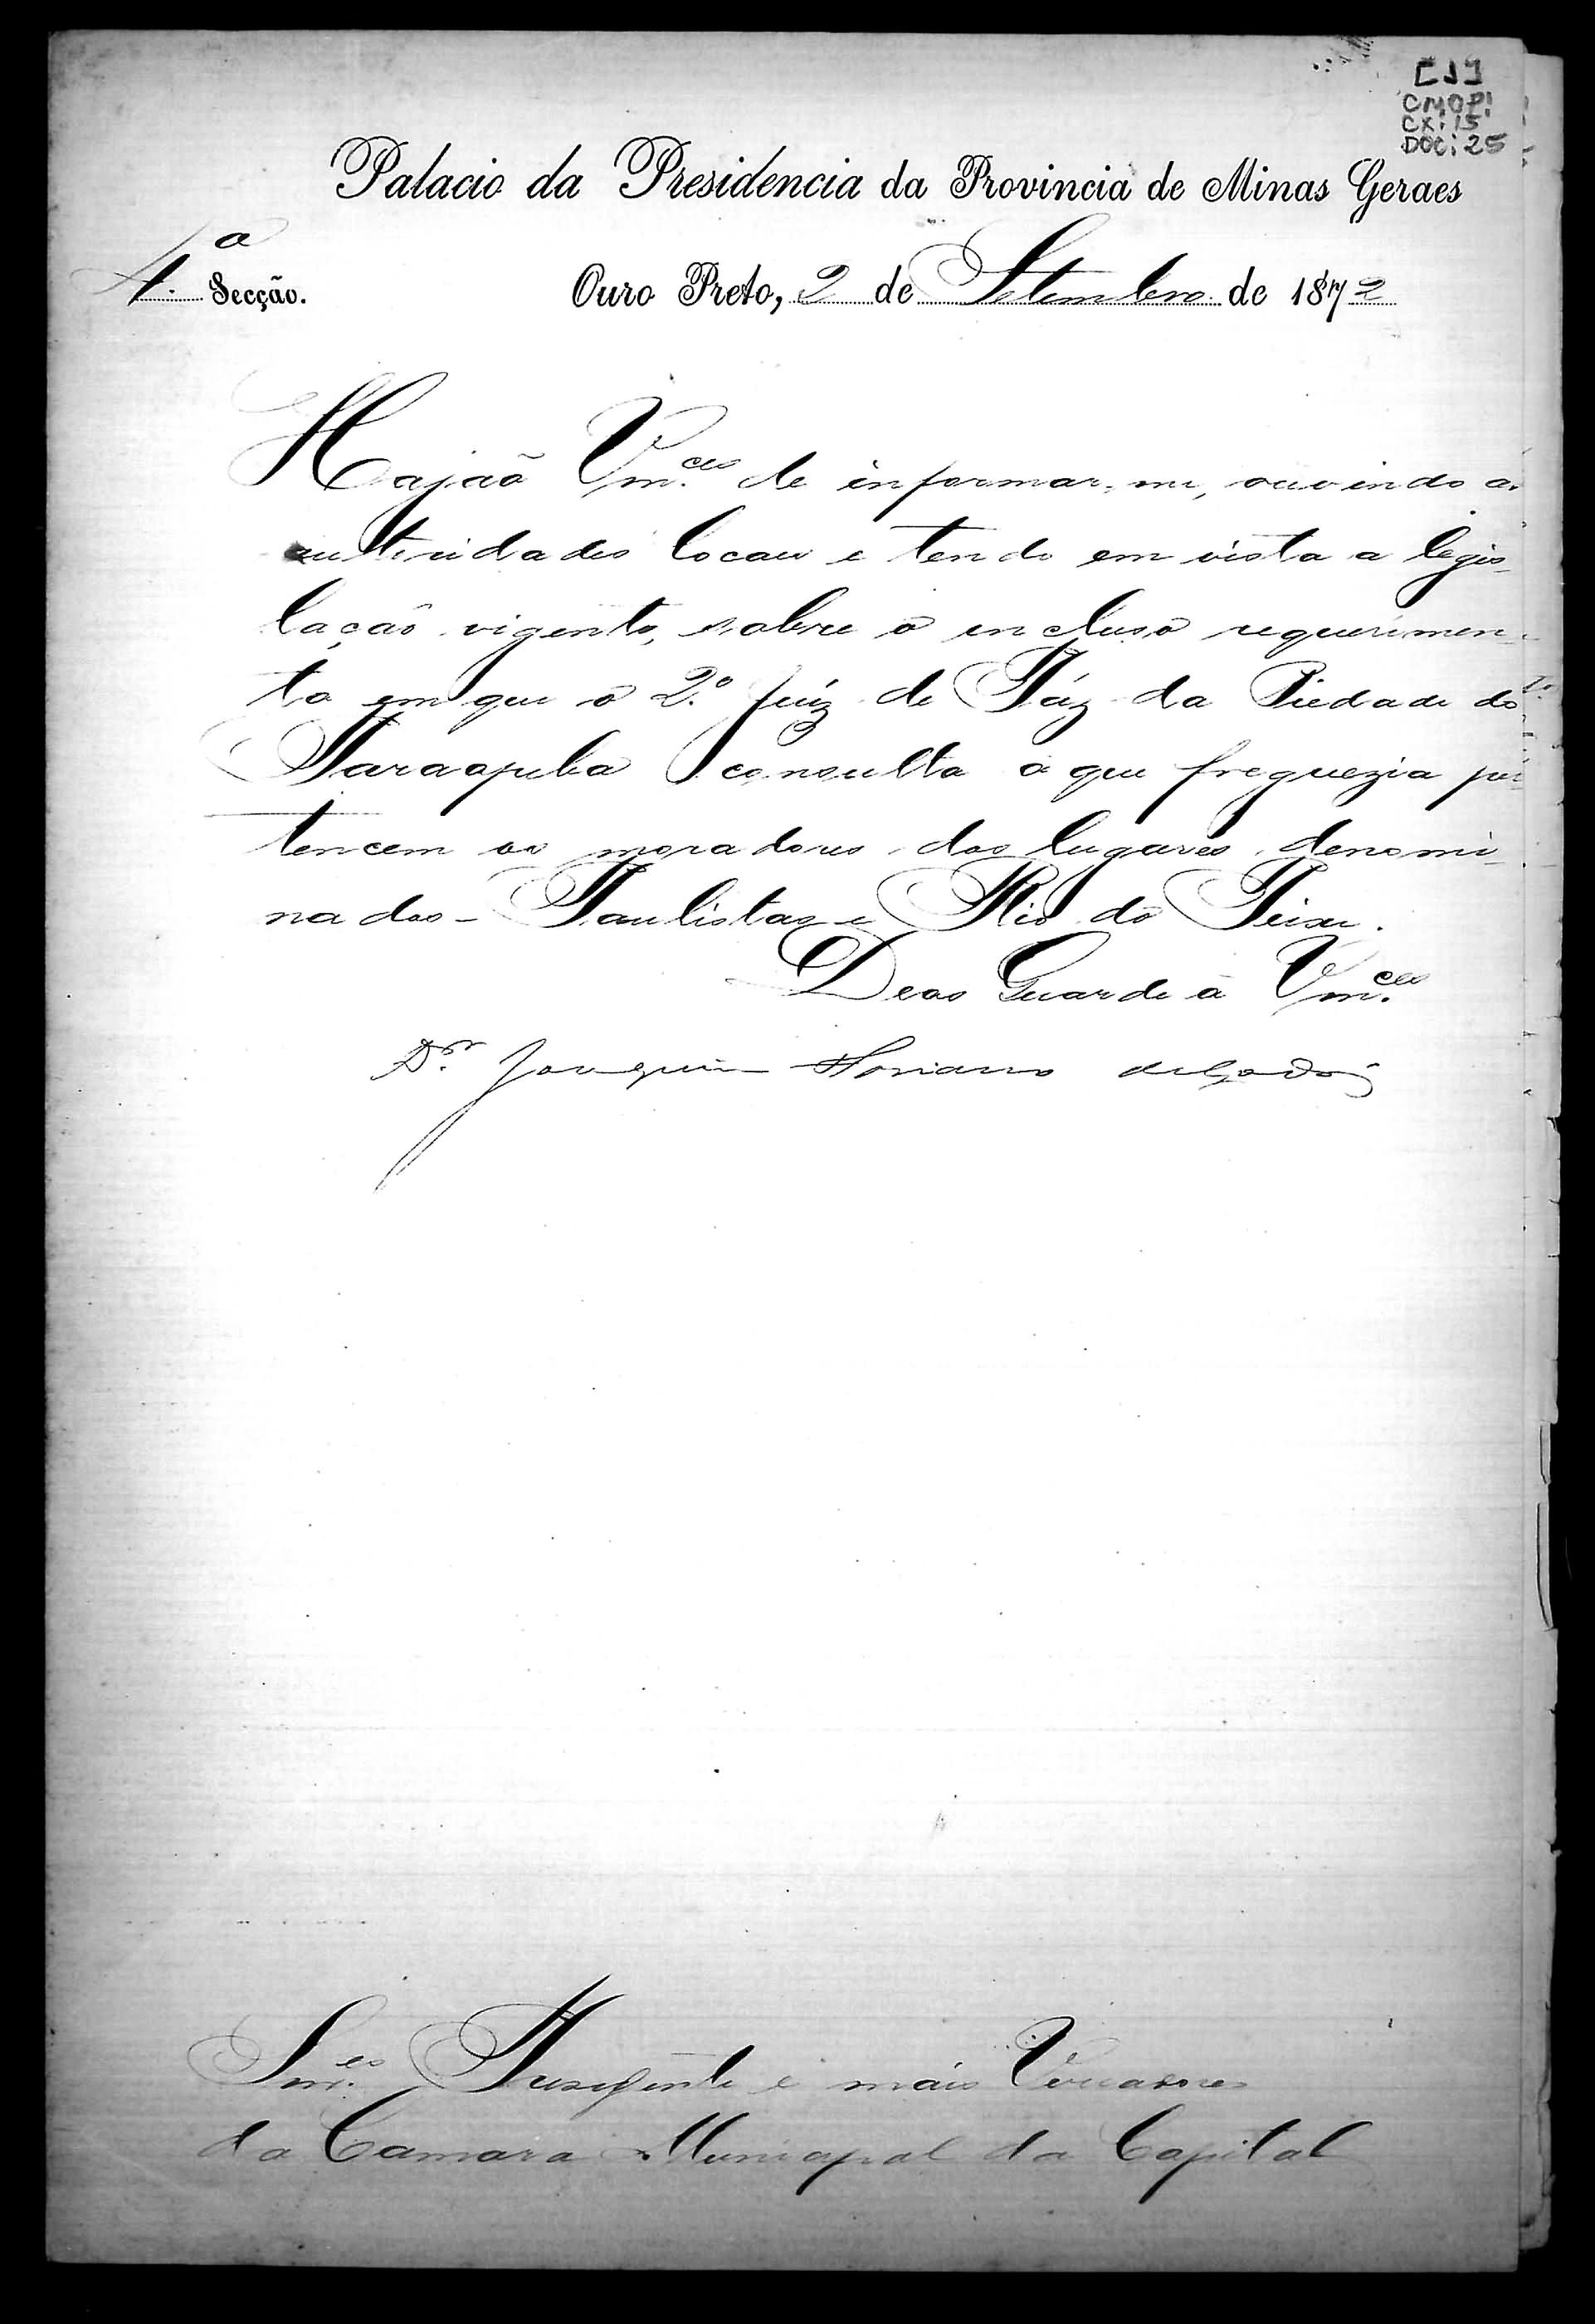 [J]
CMOP!
CX: 15
DOC: 25
Palacio da Presidencia da Provincia de Minas Geraes
4.a Secção.
Ouro Preto, 2 de Setembro de 1872
Hajaõ Vm.ces de informar-me, ouvindo as
autoridades locaes e tendo em vista a legis-
lação vigente, sobre o incluso requerimen-
to em que o 2.º Juiz de Páz da Piedade do
Paraopeba consulta a que freguezia per-
tencem os moradores dos lugares denomi-
nados - Paulistas e Rio do Peixe.
Deos Guarde a Vm.ces
D.or Joaquim Floriano de Godoy
Snr.es Presidente e mais Vereadores
da Camara Municipal da Capital